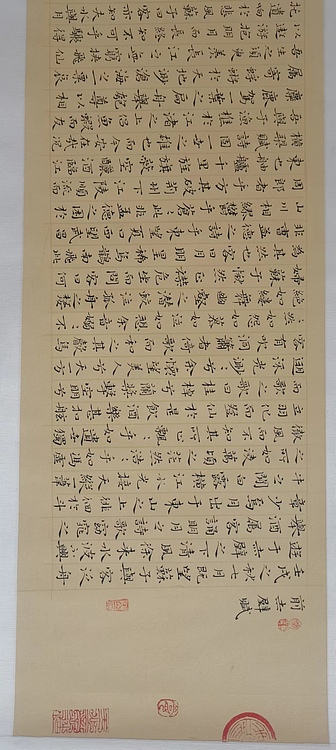 前赤壁賦
壬戌之秋七月既望蘇子與客泛舟
遊於赤壁之下清風徐來水波不興
舉酒屬客誦明月之詩歌窈窕之
章少焉月出於東山之上徘徊於斗
牛之間白露橫江水光接天縱一葦
之所如凌萬頃之茫然浩浩乎如馮虛
御風而不知其所止飄飄乎如遺世獨
立羽化而登仙於是飲酒樂甚扣舷
而歌之歌曰桂棹兮蘭槳擊空明兮
泝流光渺渺兮予懷望美人兮天一方
客有吹洞簫者倚歌而和之其聲嗚
嗚然如怨如慕如泣如訴餘音嫋嫋不
絕如縷舞幽壑之潛蛟泣孤舟之嫠
婦蘇子愀然正襟危坐而問客曰何
為其然也客曰月明星稀烏鵲南飛此
非曹孟德之詩乎西望夏口東望武昌
山川相繆鬱乎蒼蒼此非孟德之困於
周郎者乎方其破荊州下江陵順流
而東也舳艫千里旌旗蔽空釃酒臨江
橫槊賦詩固一世之雄也而今安在哉況
吾與子漁樵於江渚之上侶魚蝦而友
麋鹿駕一葉之扁舟舉匏樽以相
屬寄蜉蝣於天地渺滄海之一粟哀
吾生之須臾羨長江之無窮挾飛仙
以遨遊抱明月而長終知不可乎驟得
託遺響於悲風蘇子曰客亦知夫水與月